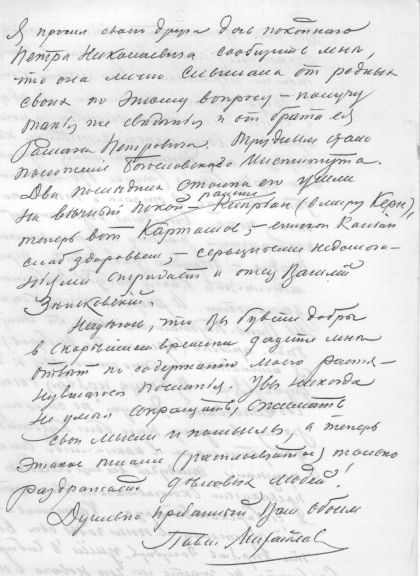 Я просил своего друга дочь покойного
Петра Николаевича сообщить мне,
что она лично слышала от родных
своих по этому вопросу – получу
такия же сведения и от брата ея
Романа Петровича. Трудным стало
положение Богословского Института.
Два последних столпа его ушли
на вечный покой – раньше Киприан (в миру Керн),
теперь вот Карташов, – епископ Кассиан
слаб здоровьем, – сердечными недомога-
ниями страдает и отец Василий
Зеньковский.
Надеюсь, что Вы будете добры
в скорейшем времени дадите мне
ответ по содержанию моего растя-
нувшагося послания. Увы никогда
не умел сокращать, сжимать
свои мысли и помыслы, а теперь
этакое писание (расплывчатое) только
раздражает деловых людей!
Душевно преданный Вам обоим
Павел